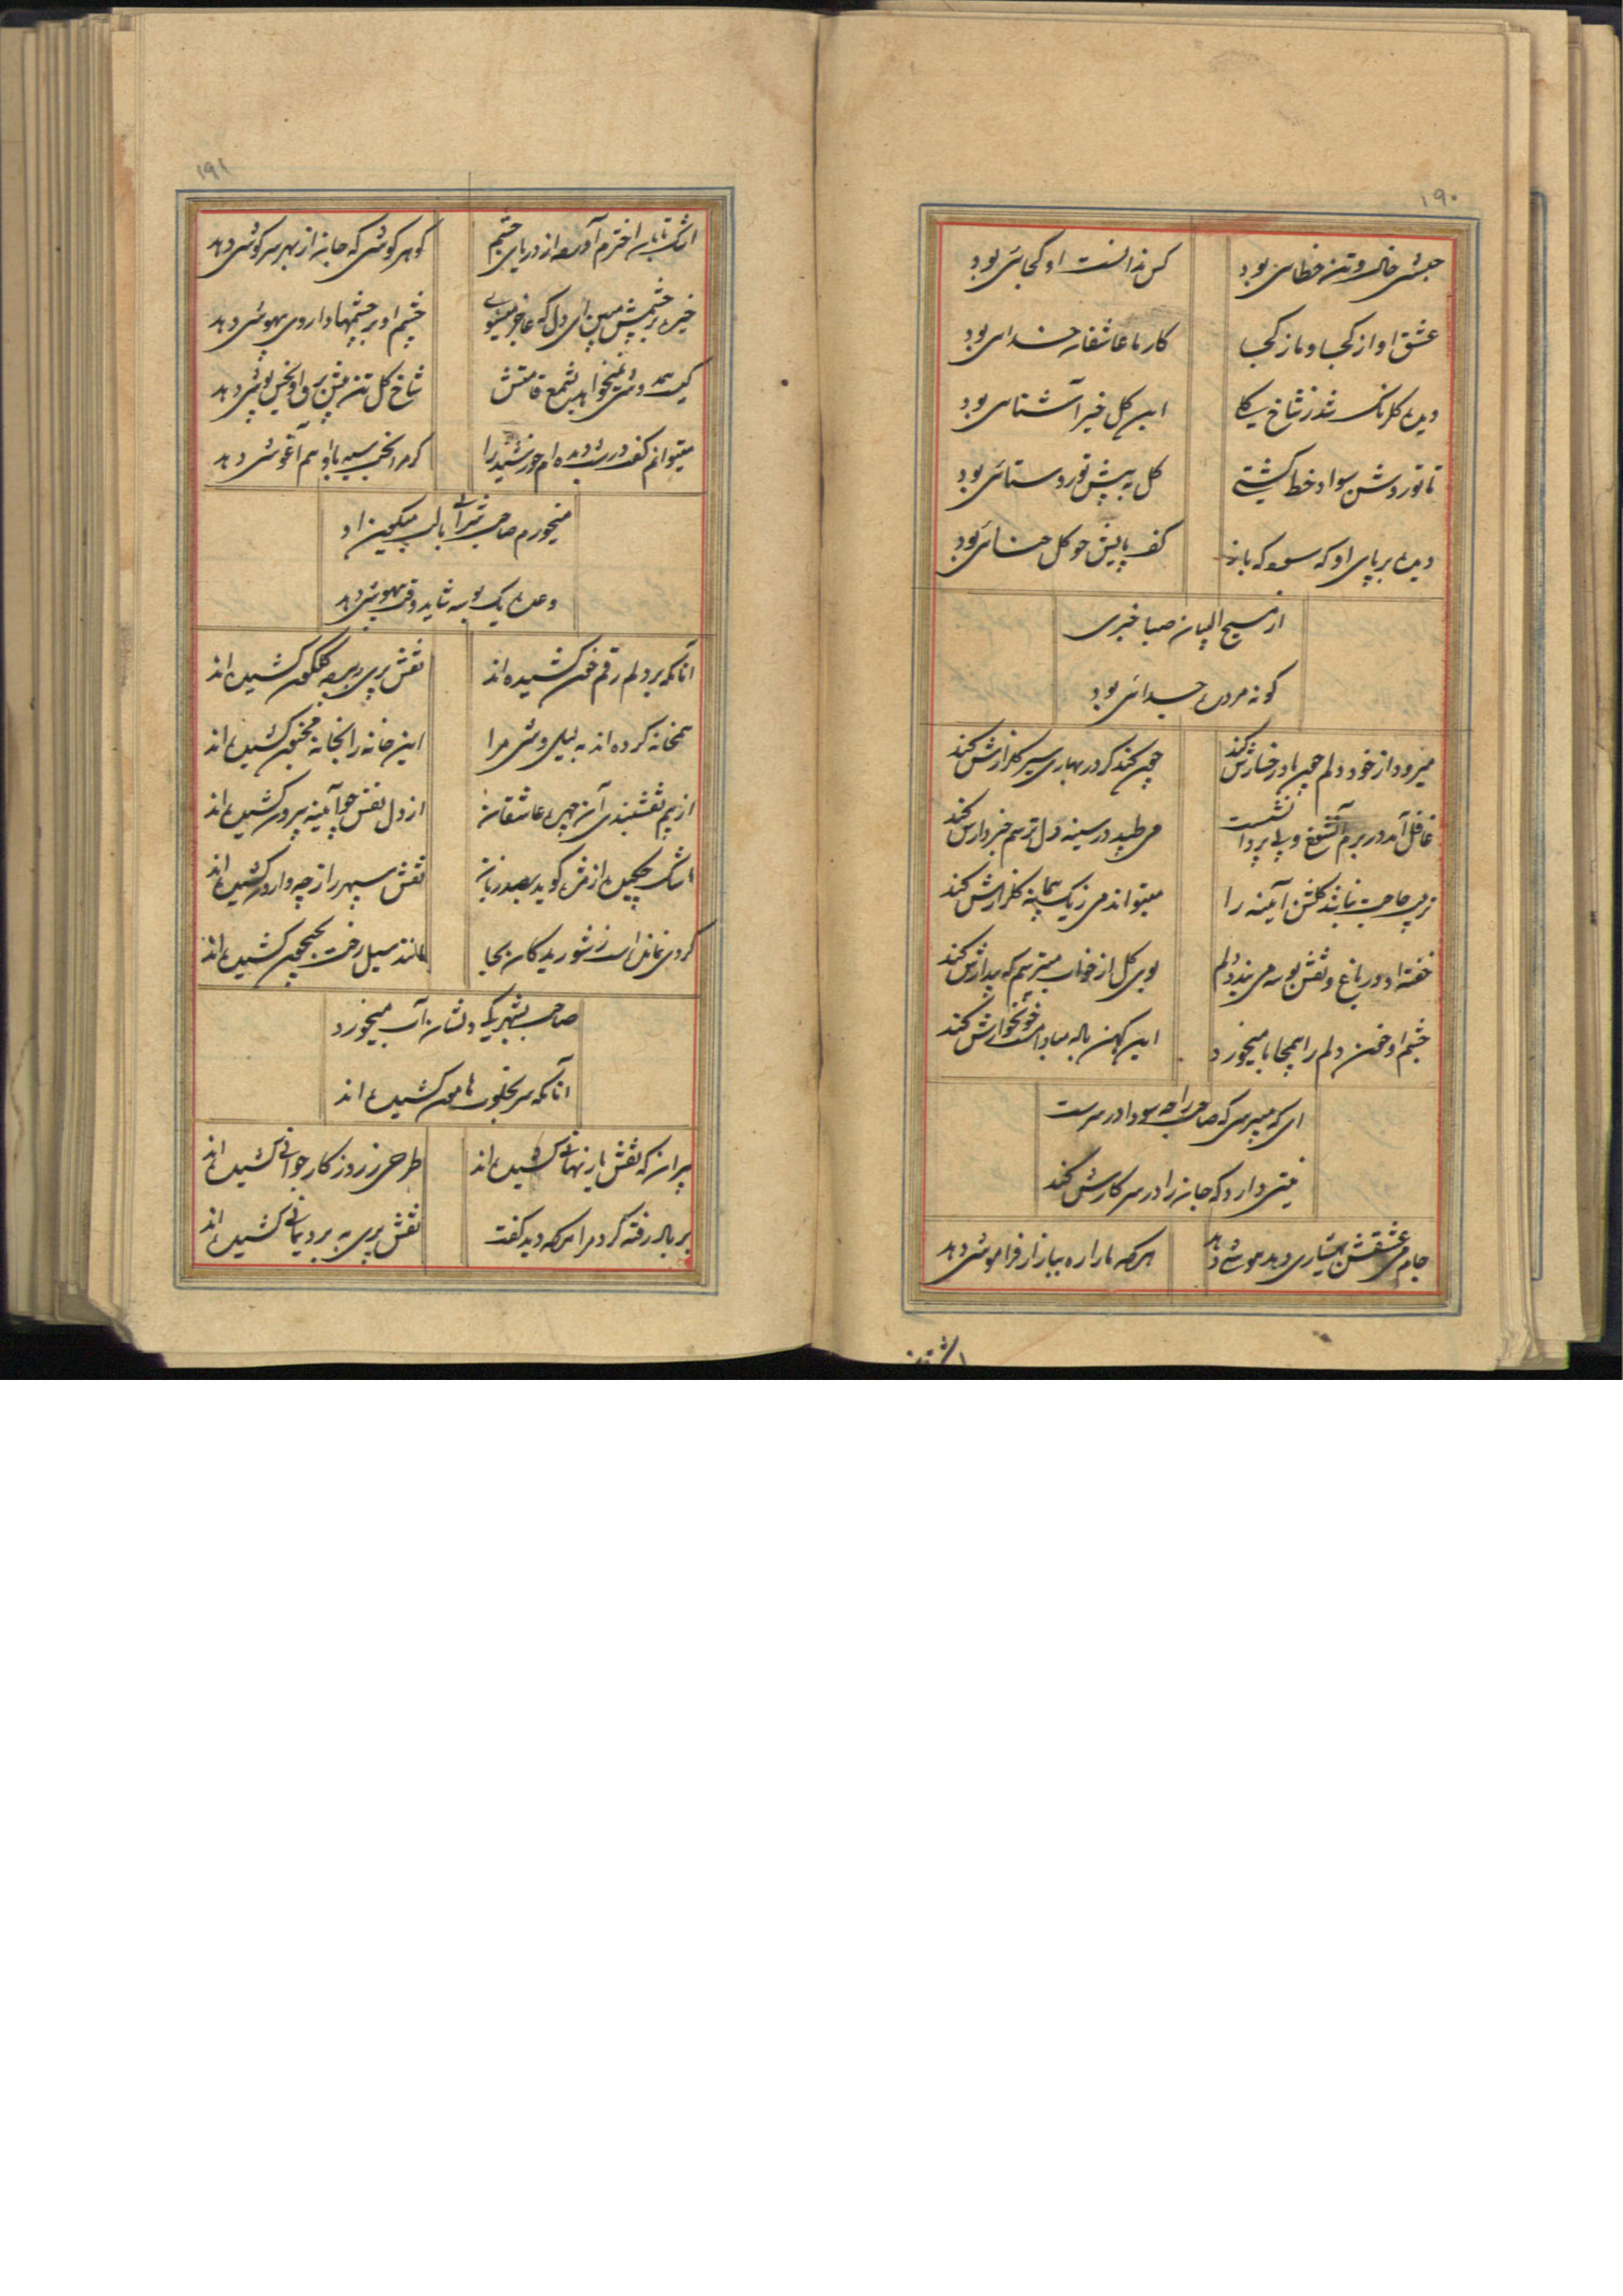 ۱۹۰
حبشی خال و تن خطایی بود
کس ندانست او کجایی بود
عشق او از کجا و ما ز کجا
کار ما عاشقان خدایی بود
دیده گلرنگ شد ز شاخ
این گل خیر آشنایی بود
تا تو روشن سواد خط گشتی
گل به پیش تو روستایی بود
دیده بر پای او که سوده که باز
کف پایش چو گل حنایی بود
از مسیح البیان صبا خبری
گو نه مرده جدایی بود
میرود از خود دلم چون یاد رخسارش کند
چون کند گر در بهاری سیر گلزارش کند
غافل آمد در برم آن شوخ و بی پروا نشست
می طپد در سینه دل ترسم خبردارش کند
آئینه را
میتواند می ز یک پیمانه گلزارش کند
خفته او در باغ و نقش بوسه می بندد دلم
بوی گل از خواب میترسم که بیدارش کند
چشم او خون دلم را بی محابا میخورد
این کهن باده مبادا مست و خونخوارش کند
ای که میپرسی که صاحب را چه سودا در سرست
نیتی دارد که جان را در سر کارش کند
جام می عشقش هشیاری دهد هوشی دهد
هر که ما را ره ببازار فراموشی دهد
۱۹۱
اشک تابان اخترم آورده از دریای چشم
گوهر گوشی که جان از بهر سرگوشی دهد
خیره بر چشمش مبین ای دل که عاجز میشوی
چشم او بر چشمها داروی بیهوشی دهد
قامتش
شاخ گل تن پیش سرو او
میتوانم کف در رشته دیده ام خورشید را
گر مرا بخت سیه با او هم آغوشی دهد
میخورم صاحب شراب با لب میگون او
وعده یک بوسه شاید وقت بیهوشی دهد
آنانکه بر دلم رقم خون کشیده اند
نقش پری به گلگون کشیده اند
همخانه کرده اند به لیلی وشی مرا
این خانه را بخانه مجنون کشیده اند
از بیم نقشبندی آن چهره عاشقان
از دل نفس چو آینه بیرون کشیده اند
نقش سپهر را ز چه وارون کشیده اند
گردی نمانده است ز شوریدگان بجا
مانند سیل رخت بجیحون کشیده اند
صاحب بشهر یک دلشان آب میخورد
آنانکه سر بخلوت هامون کشیده اند
پیران که نقش یار نهانی کشیده اند
طرحی ز روزگار جوانی کشیده اند
بر باد رفته گرد مرا هر که دید گفت
نقش پری به برد یمانی کشیده اند